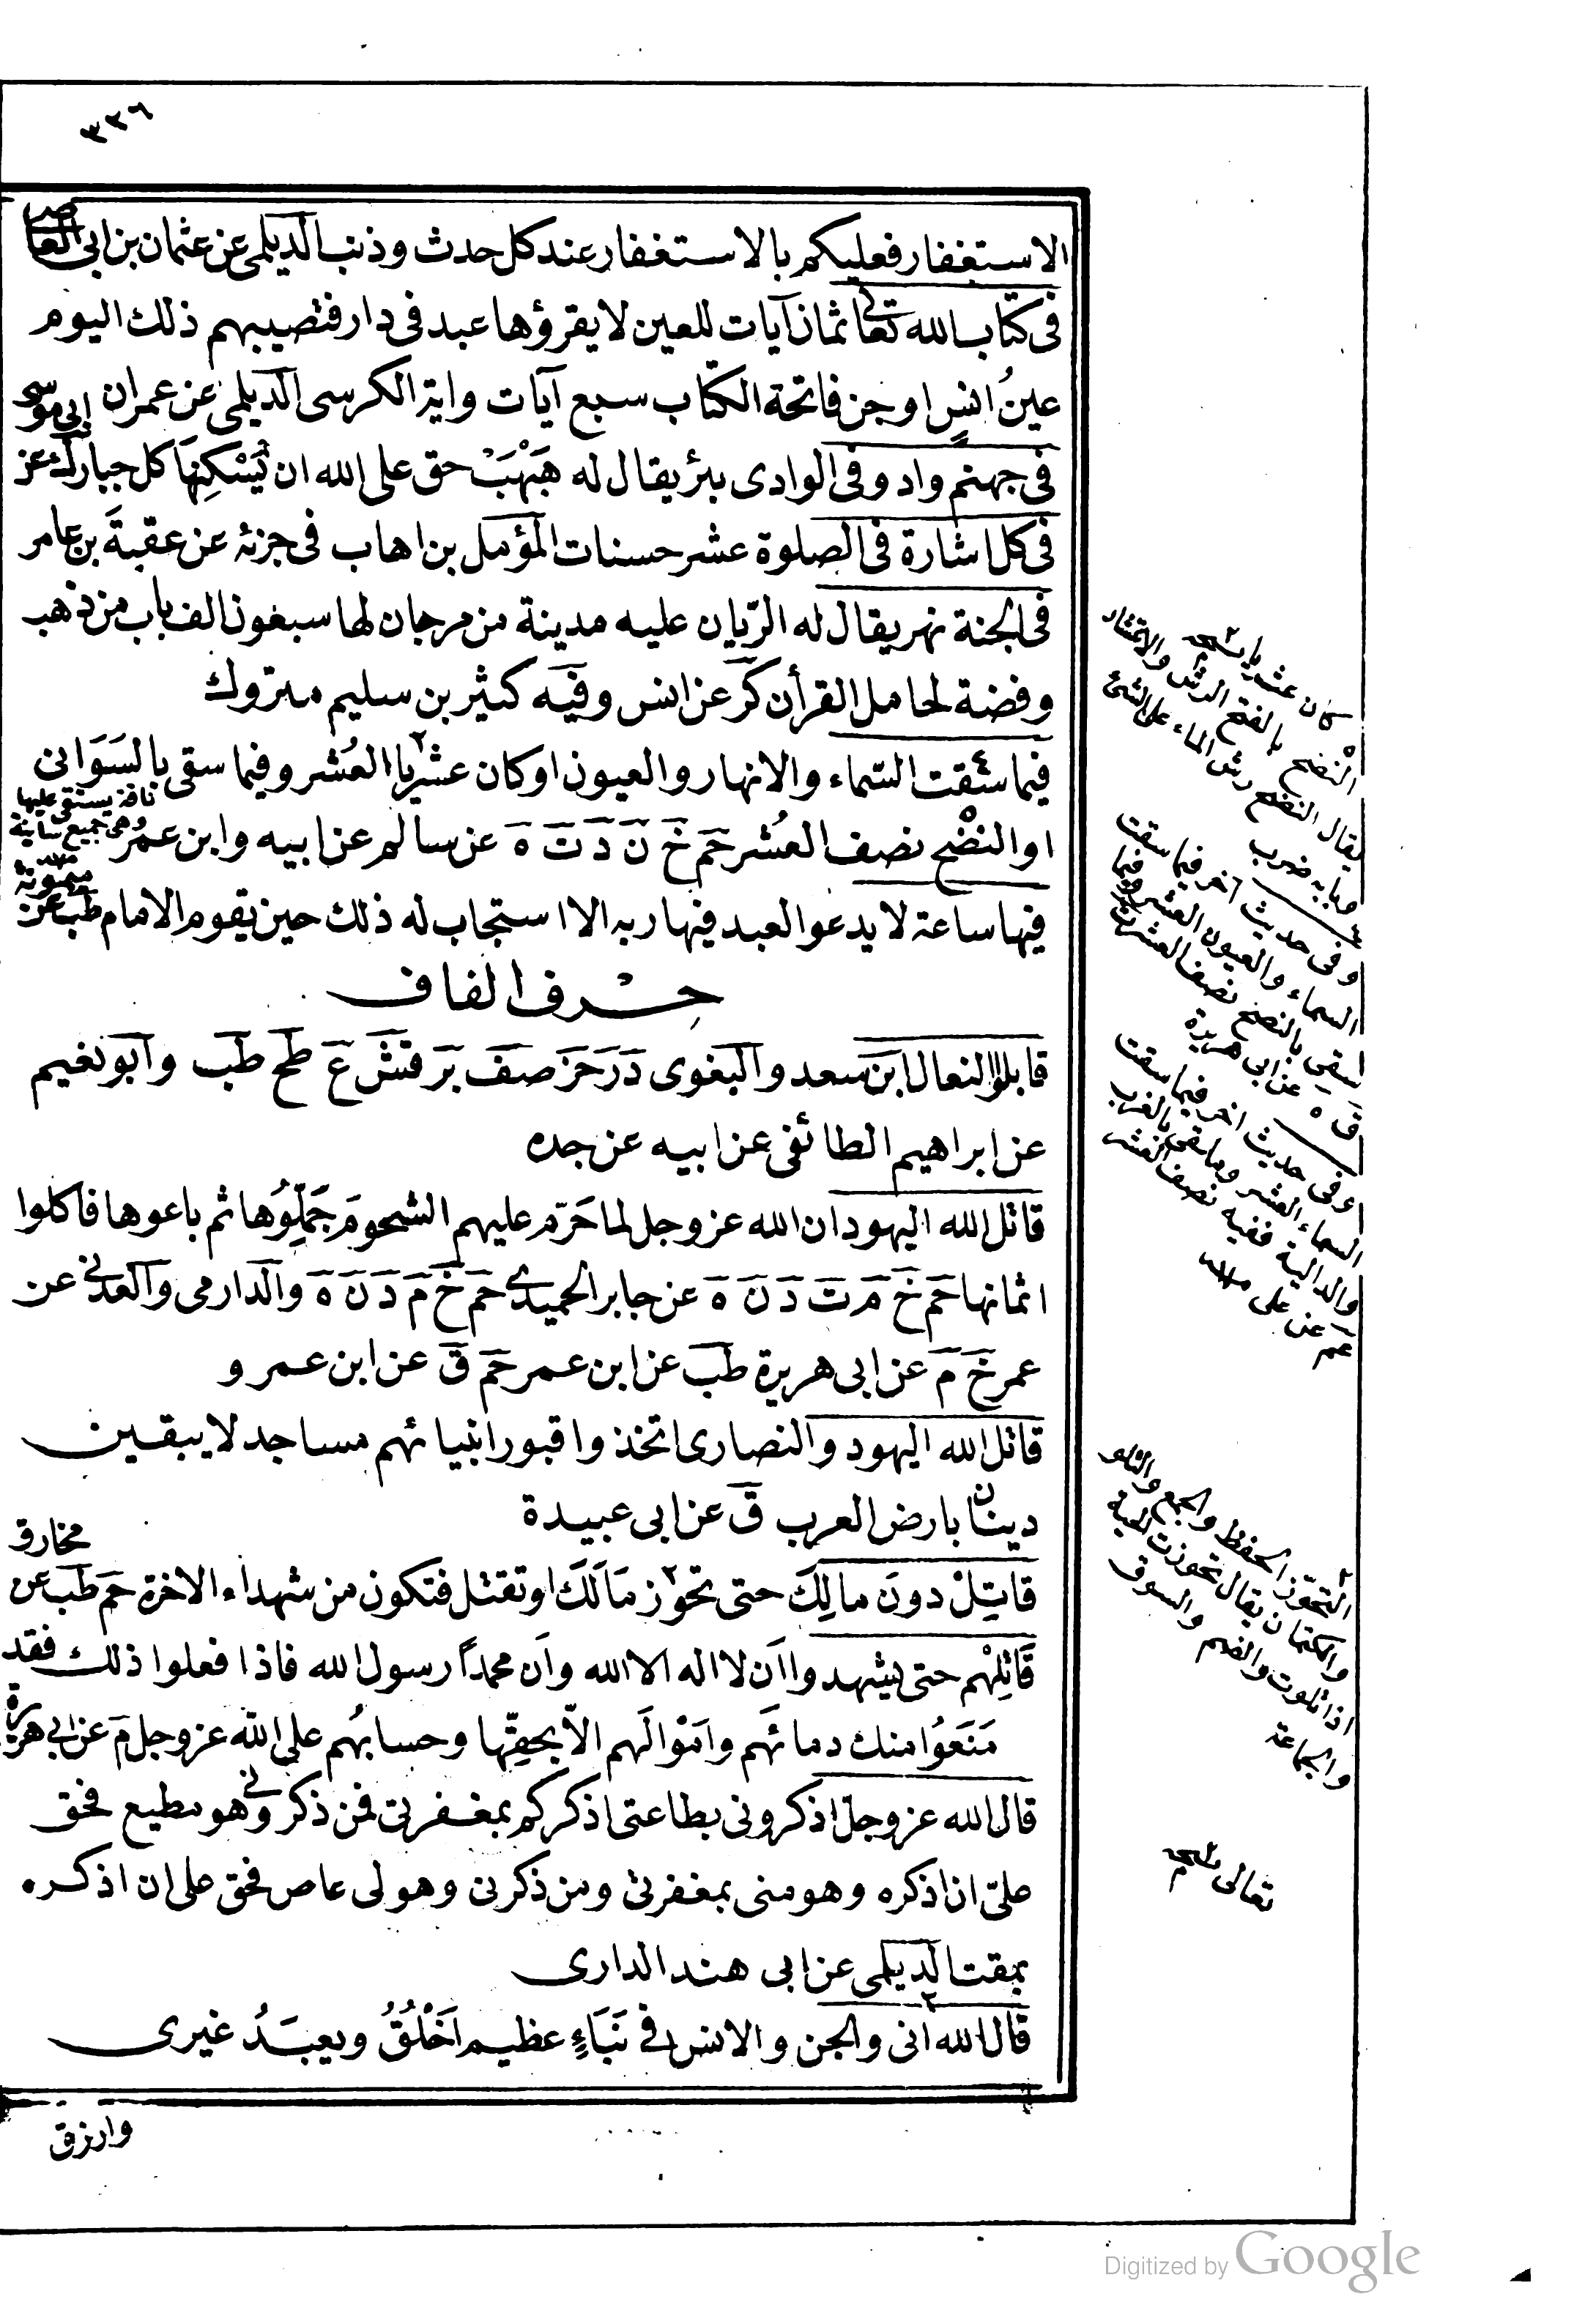 ٣٣٦
الاستغفار فعليكم بالاستغفار عند كل حدث وذنب الديلمى عن عثمان بن ابى العاص
فى كتاب الله تعالى ثمان آيات للعين لا يقرؤها عبد فى دار فتصيبهم ذلك اليوم
عينُ انسٍ او جن فاتحة الكتاب سبع آيات واية الكرسى الديلمى عن عمران
فى جهنم واد وفى الوادى بئر يقال له هَبْهَبْ حق على الله ان يُسْكِنَهَا كل جبار ك عن ابى موسى
فى كل اشارة فى الصلوة عشر حسنات المؤمل بن اهاب فى جزئه عن عقبةَ بن عامر
فى الجنة نهر يقال له الريّان عليه مدينة من مرجان لها سبعون الف باب من ذهب
وفضة لحامل القرأن كر عن انس وفيه كثير بن سليم متروك
فيما سقت السّماء والانهار والعيون او كان عشريا العُشر وفيما سقى بالسَوَانى
ناقة يستقى عليها وهى جميع سانية
او النضْح نصف العُشر حم خ ن د ت ه عن سالم عن ابيه وابن عمر
فيها ساعة لا يدعو العبد فيها ربه الا استجاب له ذلك حين يقوم الامام طب عن ميمونة
حرف القاف
قابلوا النعال ابن سعد والبغوى در حز صف بر قش ع طح طب وابو نعيم
عن ابراهيم الطائفى عن ابيه عن جده
قاتل الله اليهود ان الله عز وجل لما حَرّم عليهم الشحومَ جَمَلُوُها ثم باعوها فاكلوا
اثمانها حم خ م ت د ن ه عن جابر الحميدى حم خ م د ن ه والدارمى والعدنى عن
عمر خ م عن ابى هريرة طب عن ابن عمر حم ق عن ابن عمرو
قاتل الله اليهود والنصارى اتخذوا قبور انبيائهم مساجد لا يبقين
دينان بارض العرب ق عن ابى عبيدة
قاتِلْ دونَ مالِكَ حتى تحوّز مَالَكَ او تقتل فتكون من شهداء الاخرة حم طب عن مخارق
قَاتِلْهم حتى يشهدوا اَن لا اله الا الله واَن محمداً رسول الله فاذا فعلوا ذلك فقد
مَنَعَوُا منك دمائَهم وامْوالَهم الاّ بحقِّها وحسابُهم على الله عز وجل م عن ابى هريرة
قال الله عز وجلّ اذكرونى بطاعتى اذكركم بمغفرتى فمن ذكرونى وهو مطيع فحق
علىّ ان اذكره وهو منى بمغفرتى ومن ذكرنى وهو لى عاص فحق على ان اذكره
بمقت الديلمى عن ابى هند الدارى
قال الله انى والجن والانس فى نَبَاءٍ عظيم اَخْلُقُ ويعبَدُ غيرى
وارزق
كان عشريا نسخه
النْضح بالفتح الرش والانتثار
يقال النضح رش الماء على الشئ
وبابه ضرب
وفى حديث آخر فيما سقت
السماء والعيون العشر وفيما
سقى بالنضح نصف العشر ت
ق ه عن ابى هريرة
وفى حديث اخر فيما سقت
السماء العشر وما سقى بالغرب
والدالية ففيه نصف العشر
عم عن على
التحوّز الحفظ والجمع والتلو
والكتمان يقال تحوزت الحية
اذا تلوت والضم والسوق
والجماعة
تعالى نسخه
Digitized by Google